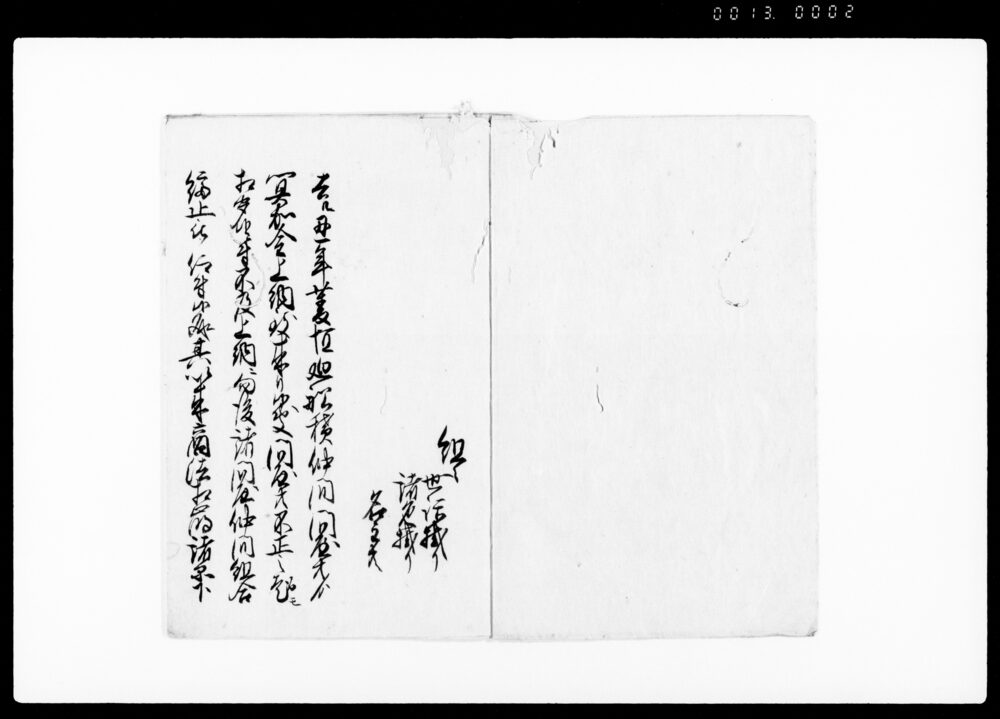 0013. 0002
組々
世話掛り
諸色掛り
名主共
去ル丑年菱垣廻船積仲間問屋共ゟ
冥加金上納致来候処問屋共不正之趣ニモ
相聞候付不及上納向後諸問屋仲間組合
停止被 仰付候処其以来商法相崩諸品下